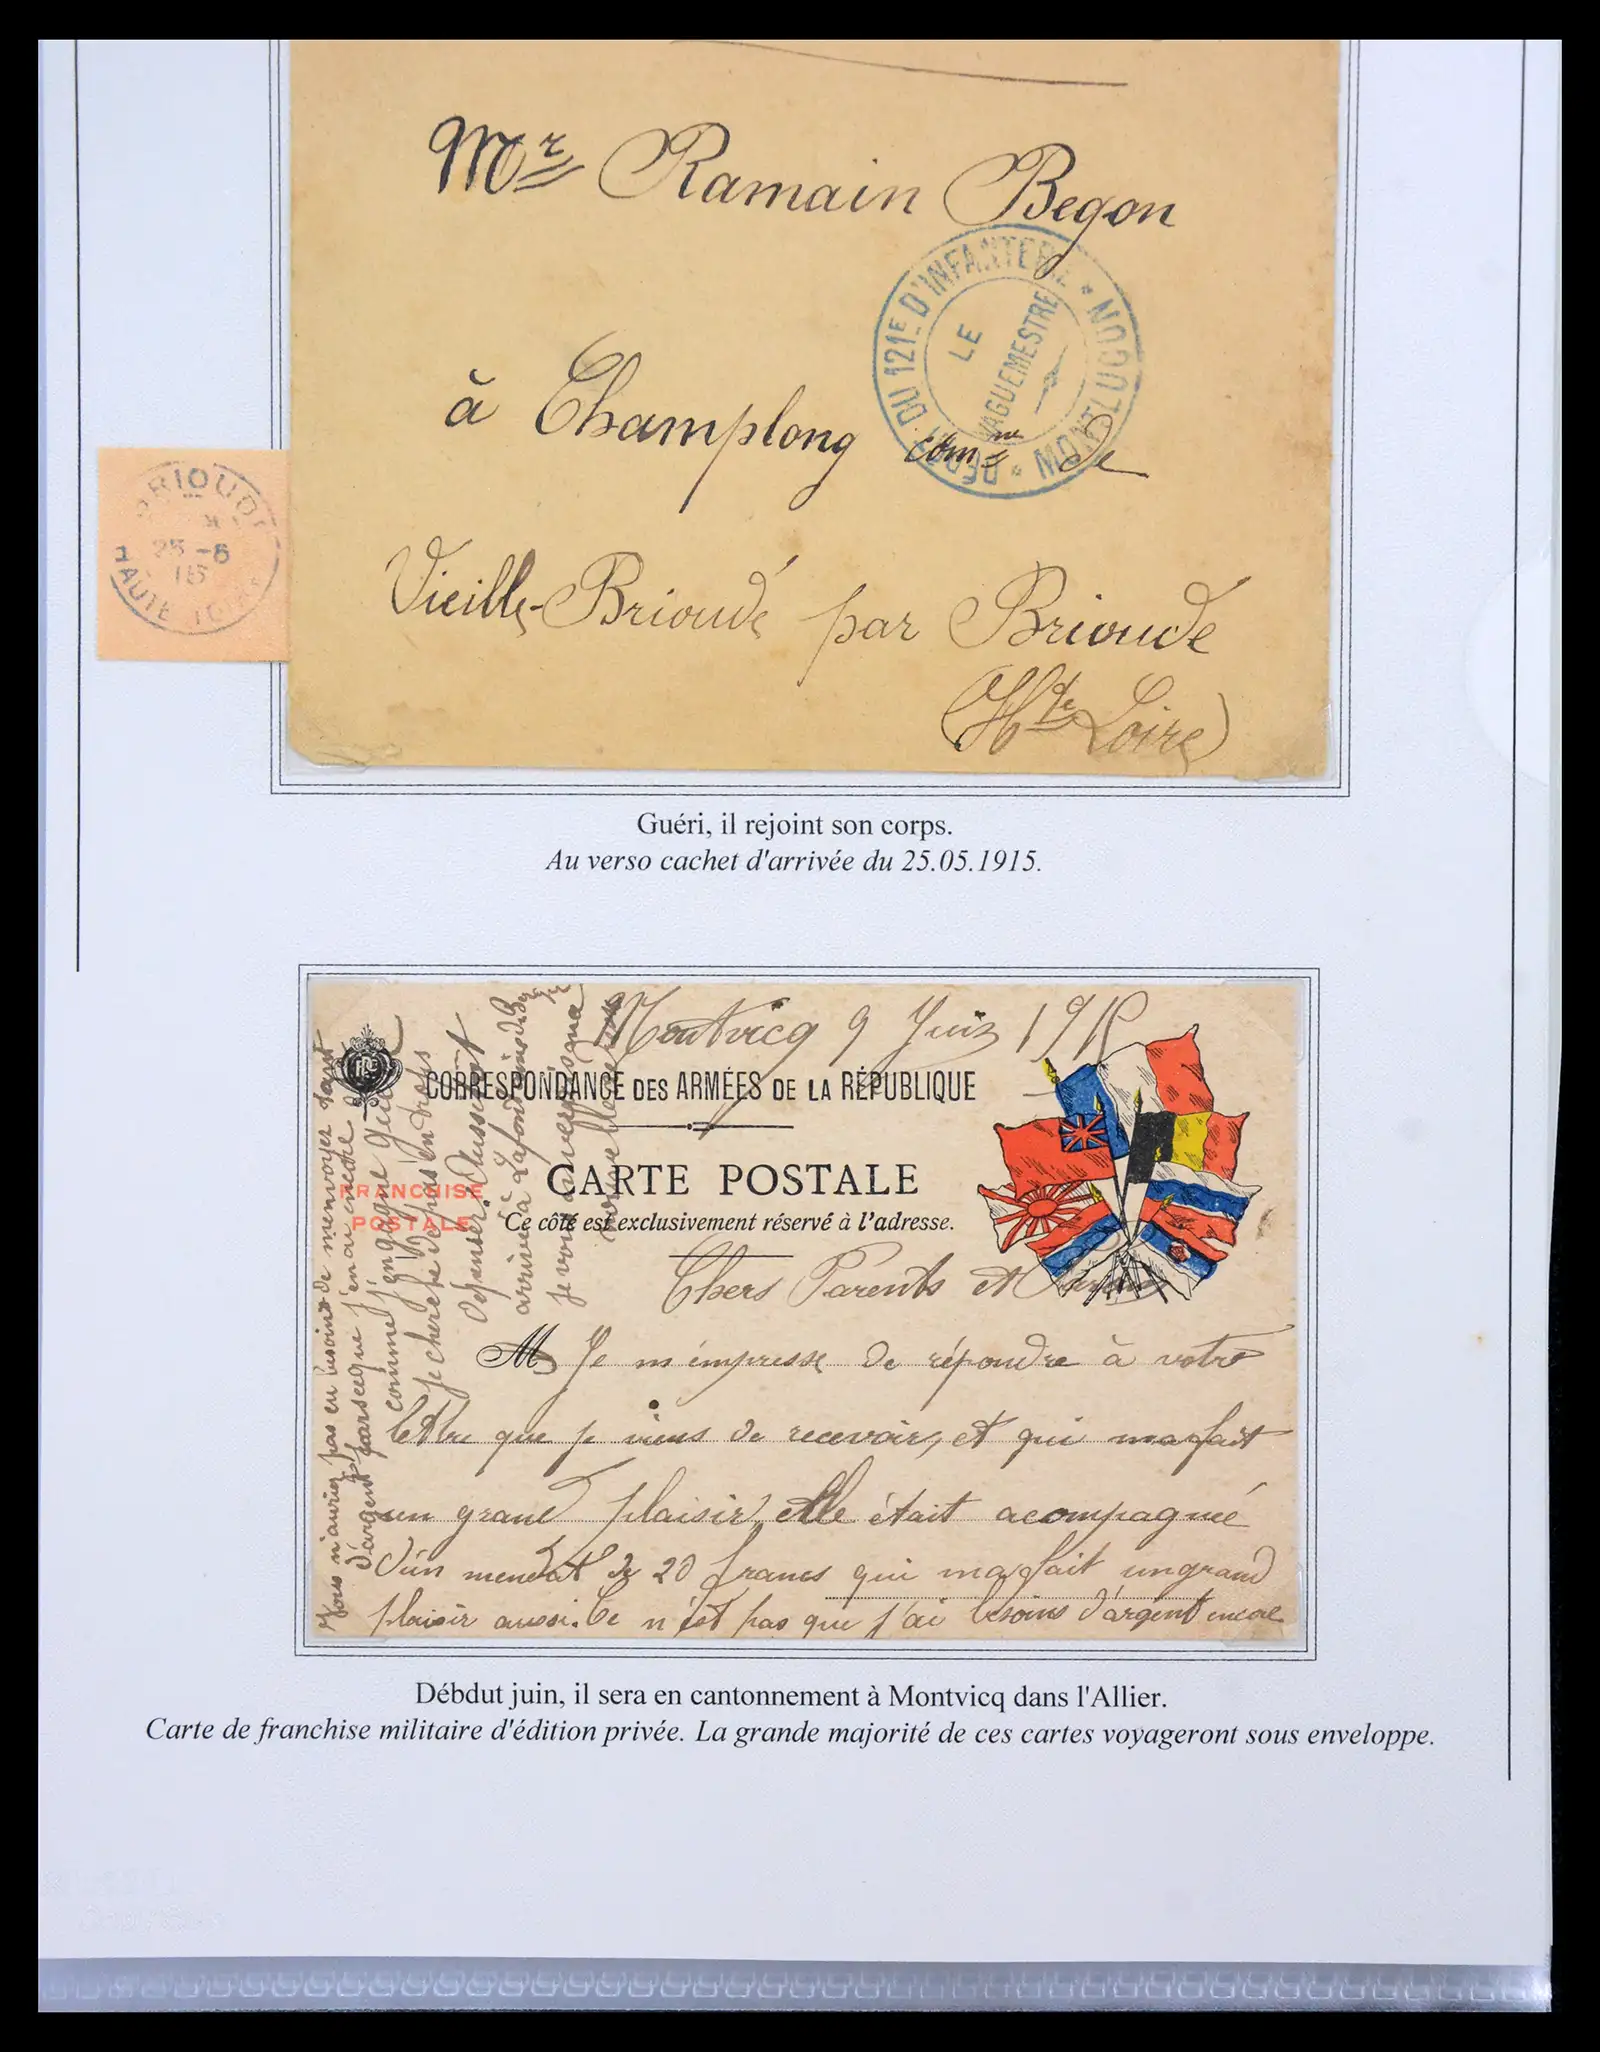 Mr Ramain Begon
DÉPÔT DU 121E D'INFANTERIE * MONTLUÇON *
LE
VAGUEMESTRE
à Champlong comne de
Vieille-Brioude par Brioude
(Hte Loire)
BRIOUDE
25 -5
15
HAUTE LOIRE
Guéri, il rejoint son corps.
Au verso cachet d'arrivée du 25.05.1915.
Montvicq 9 Juin 1915
RF
CORRESPONDANCE DES ARMÉES DE LA RÉPUBLIQUE
CARTE POSTALE
FRANCHISE
POSTALE
Ce côté est exclusivement réservé à l'adresse.
Chers Parents et
M Je m'empresse de répondre à votre
lettre que je viens de recevoir, et qui ma fait
un grand plaisir, elle était acompagnée
d'un mendat de 20 francs qui ma fait un grand
plaisir aussi. Ce n'est pas que j'ai besoins d'argent encore
Vous n'auriez pas eu besoins de m'envoyer tant
d'argent parseque j'en ai encore
comme j'en gagne
je cherche de pas en trop
depenser. Aussitôt
arrivé à Lafond
je vous
Débdut juin, il sera en cantonnement à Montvicq dans l'Allier.
Carte de franchise militaire d'édition privée. La grande majorité de ces cartes voyageront sous enveloppe.